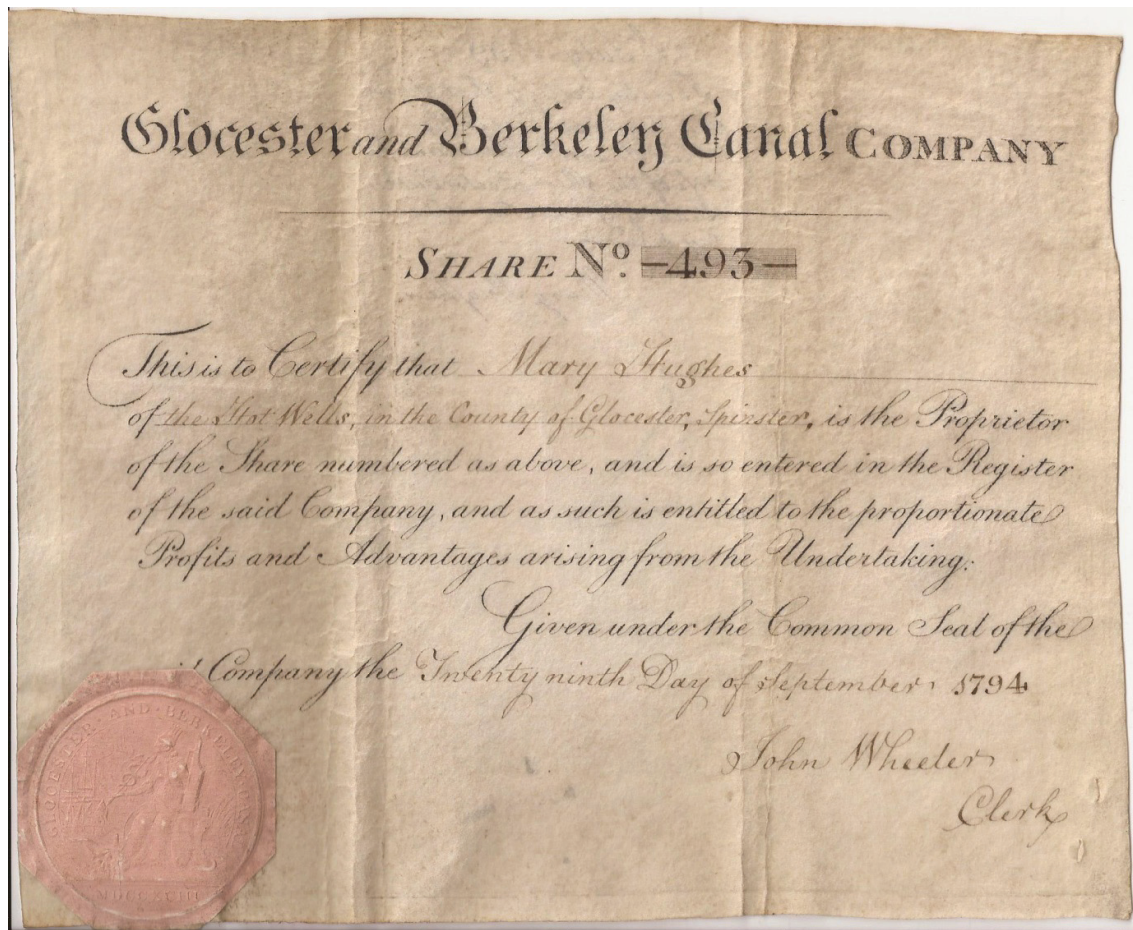 Glocester and Berkeley Canal COMPANY
SHARE No. —493—
This is to Certify that Mary Hughes
of the Hot Wells, in the County of Glocester, Spinster, is the Proprietor
of the Share numbered as above, and is so entered in the Register
of the said Company, and as such is entitled to the proportionate
Profits and Advantages arising from the Undertaking.
Given under the Common Seal of the
Company the Twenty ninth Day of September 1794
John Wheeler
Clerk
GLOCESTER AND BERKELEY
MDCCXCIII